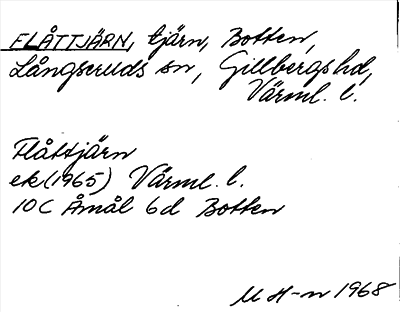 FLÅTTJÄRN, tjärn, Botten,
Långseruds sn, Gillbergs hd,
Värml. l.
Flåttjärn
ek (1965) Värml. l.
10C Åmål 6d Botten
M H-n 1968